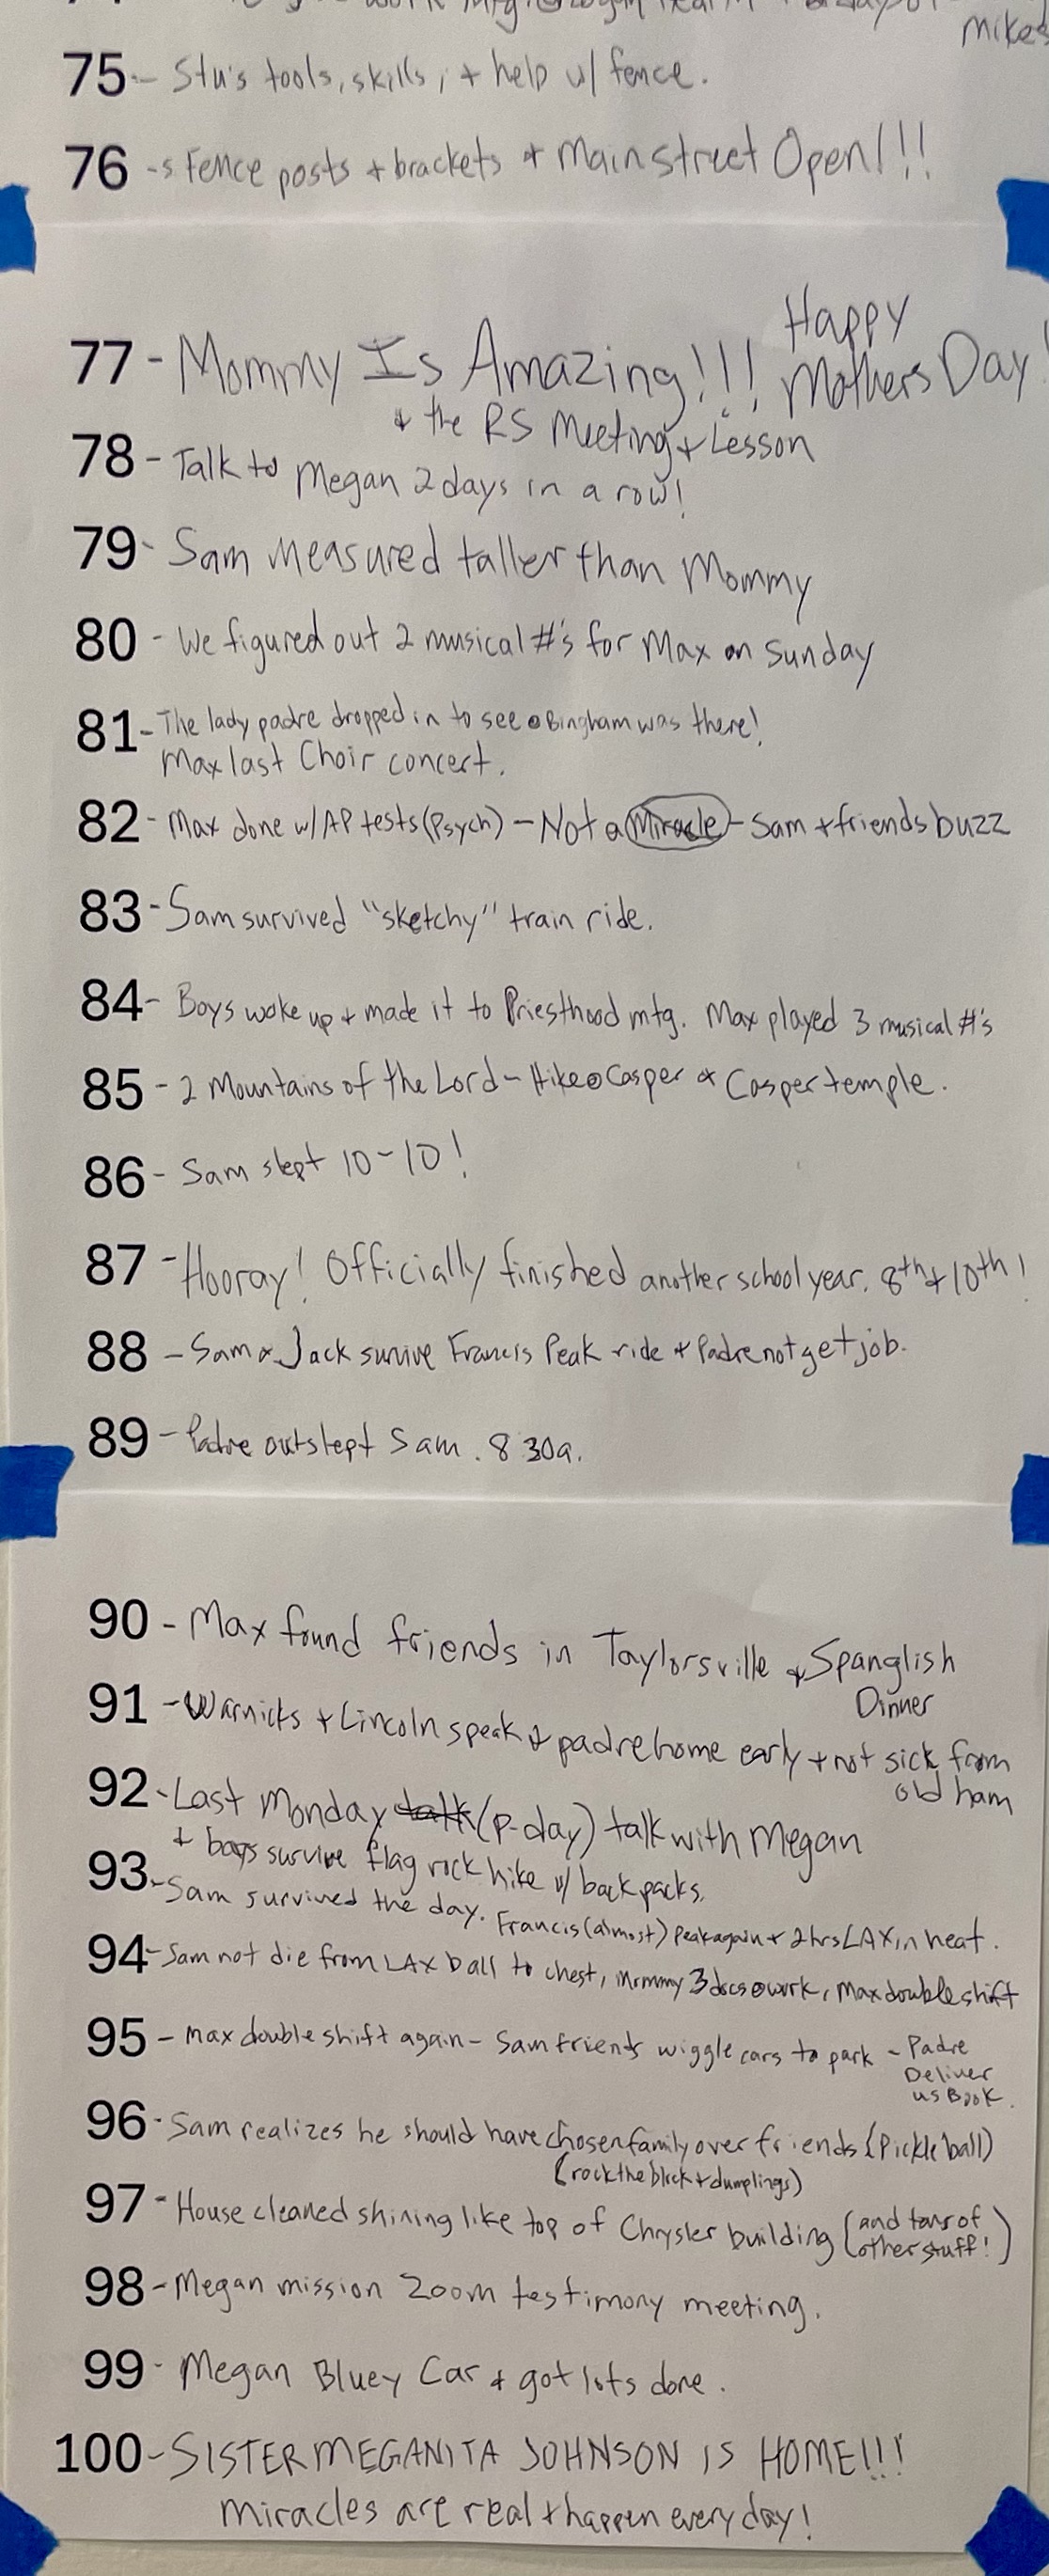 Mikes
75 - Stu's tools, skills, + help w/ fence.
76 - Fence posts + brackets + Mainstreet Open!!!
Happy
77 - Mommy Is Amazing!!! Mothers Day!
+ the RS Meeting + Lesson
78 - Talk to Megan 2 days in a row!
79 - Sam measured taller than Mommy
80 - We figured out 2 musical #'s for Max on Sunday
81 - The lady padre dropped in to see @ Bingham was there!
Max last Choir concert.
82 - Max done w/ AP tests (Psych) - Not a Miracle - Sam + friends buzz
83 - Sam survived "sketchy" train ride.
84 - Boys woke up + made it to Priesthood mtg. Max played 3 musical #'s
85 - 2 Mountains of the Lord - Hike @ Casper + Casper temple.
86 - Sam slept 10-10!
87 - Hooray! Officially finished another school year. 8th + 10th!
88 - Sam + Jack survive Francis Peak ride + Padre not get job.
89 - Padre outslept Sam. 8 30a.
90 - Max found friends in Taylorsville + Spanglish
Dinner
91 - Warnicks + Lincoln speak + padre home early + not sick from
old ham
92 - Last Monday talk (P-day) talk with Megan
+ boys survive flag rock hike w/ backpacks.
93 - Sam survived the day. Francis (almost) Peak again + 2 hrs LAX in heat.
94 - Sam not die from LAX ball to chest, Mommy 3 docs @ work, Max double shift
95 - Max double shift again - Sam friends wiggle cars to park - Padre
Deliver
us Book.
96 - Sam realizes he should have chosen family over friends (Pickleball)
(rock the block + dumplings)
97 - House cleaned shining like top of Chrysler building (and tons of
other stuff!)
98 - Megan mission Zoom testimony meeting.
99 - Megan Bluey Car + got lots done.
100 - SISTER MEGANITA JOHNSON IS HOME!!!
Miracles are real + happen every day!